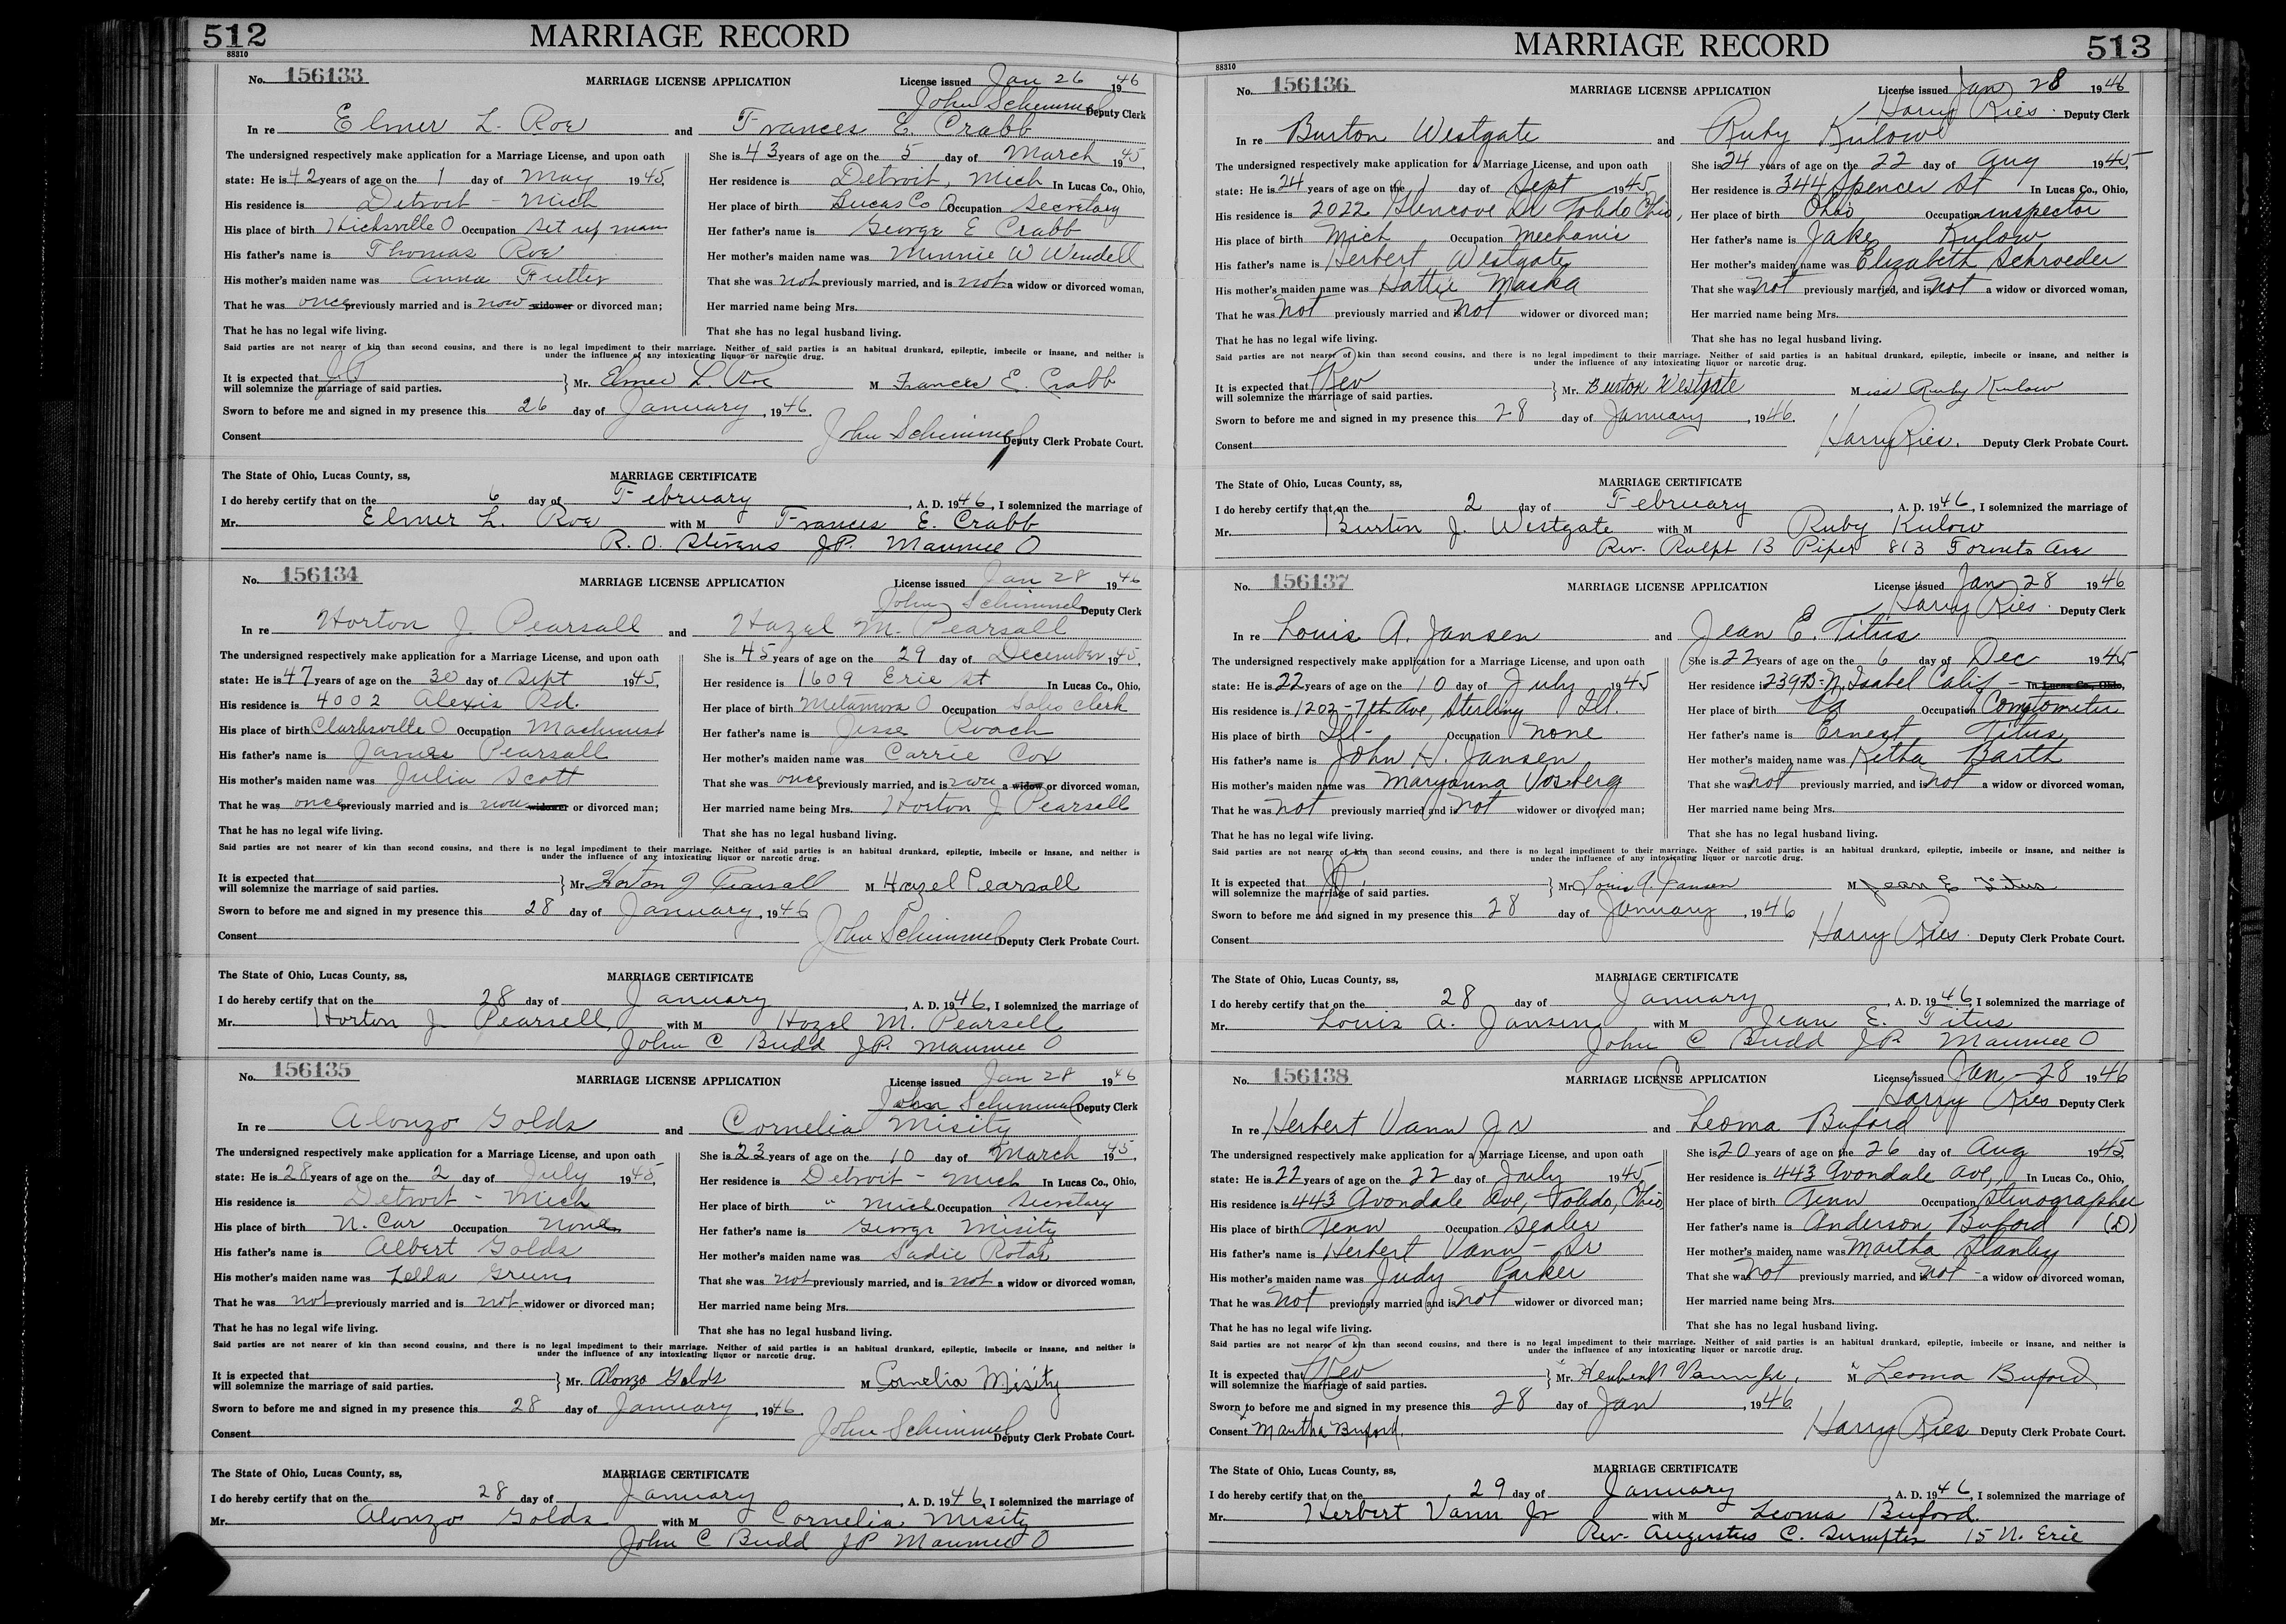 512
88310
MARRIAGE RECORD
No. 156133 MARRIAGE LICENSE APPLICATION License issued Jan 26 1946
John Schimmel Deputy Clerk
In re Elmer L. Roe and Frances E. Crabb
The undersigned respectively make application for a Marriage License, and upon oath
state: He is 42 years of age on the 1 day of May 1945,
His residence is Detroit - Mich
His place of birth Hicksville O Occupation Set up man
His father's name is Thomas Roe
His mother's maiden name was Anna
That he was once previously married and is now widower or divorced man;
That he has no legal wife living.
She is 43 years of age on the 5 day of March 1945,
Her residence is Detroit, Mich In Lucas Co., Ohio,
Her place of birth Lucas Co O Occupation Secretary
Her father's name is George E Crabb
Her mother's maiden name was Minnie W Wendell
That she was not previously married, and is not a widow or divorced woman,
Her married name being Mrs.
That she has no legal husband living.
Said parties are not nearer of kin than second cousins, and there is no legal impediment to their marriage. Neither of said parties is an habitual drunkard, epileptic, imbecile or insane, and neither is
under the influence of any intoxicating liquor or narcotic drug.
It is expected that J.P.
will solemnize the marriage of said parties. } Mr. Elmer L. Roe M Frances E. Crabb
Sworn to before me and signed in my presence this 26 day of January, 1946.
Consent John Schimmel Deputy Clerk Probate Court.
The State of Ohio, Lucas County, ss, MARRIAGE CERTIFICATE
I do hereby certify that on the 6 day of February, A. D. 1946, I solemnized the marriage of
Mr. Elmer L. Roe with M Frances E. Crabb
R. O. Stevens J.P. Maumee O
No. 156134 MARRIAGE LICENSE APPLICATION License issued Jan 28 1946
John Schimmel Deputy Clerk
In re Horton J. Pearsall and Hazel M. Pearsall
The undersigned respectively make application for a Marriage License, and upon oath
state: He is 47 years of age on the 30 day of Sept 1945,
His residence is 4002 Alexis Rd.
His place of birth Clarksville O Occupation Machinist
His father's name is James Pearsall
His mother's maiden name was Julia Scott
That he was once previously married and is now widower or divorced man;
That he has no legal wife living.
She is 45 years of age on the 29 day of December 1945,
Her residence is 1609 Erie St In Lucas Co., Ohio,
Her place of birth Metamora O Occupation Sales Clerk
Her father's name is Jesse Roach
Her mother's maiden name was Carrie Cox
That she was once previously married, and is now a widow or divorced woman,
Her married name being Mrs. Horton J Pearsall
That she has no legal husband living.
Said parties are not nearer of kin than second cousins, and there is no legal impediment to their marriage. Neither of said parties is an habitual drunkard, epileptic, imbecile or insane, and neither is
under the influence of any intoxicating liquor or narcotic drug.
It is expected that
will solemnize the marriage of said parties. } Mr. Horton J Pearsall M Hazel Pearsall
Sworn to before me and signed in my presence this 28 day of January, 1946
Consent John Schimmel Deputy Clerk Probate Court.
The State of Ohio, Lucas County, ss, MARRIAGE CERTIFICATE
I do hereby certify that on the 28 day of January, A. D. 1946, I solemnized the marriage of
Mr. Horton J. Pearsell with M Hazel M. Pearsell
John C Budd J.P. Maumee O
No. 156135 MARRIAGE LICENSE APPLICATION License issued Jan 28 1946
John Schimmel Deputy Clerk
In re Alonzo Golds and Cornelia Misity
The undersigned respectively make application for a Marriage License, and upon oath
state: He is 28 years of age on the 2 day of July 1945,
His residence is Detroit - Mich
His place of birth N. Car Occupation None
His father's name is Albert Golds
His mother's maiden name was Lella Green
That he was not previously married and is not widower or divorced man;
That he has no legal wife living.
She is 23 years of age on the 10 day of March 1945,
Her residence is Detroit - Mich In Lucas Co., Ohio,
Her place of birth " Mich Occupation Secretary
Her father's name is George Misity
Her mother's maiden name was Sadie Rotar
That she was not previously married, and is not a widow or divorced woman,
Her married name being Mrs.
That she has no legal husband living.
Said parties are not nearer of kin than second cousins, and there is no legal impediment to their marriage. Neither of said parties is an habitual drunkard, epileptic, imbecile or insane, and neither is
under the influence of any intoxicating liquor or narcotic drug.
It is expected that
will solemnize the marriage of said parties. } Mr. Alonzo Golds M Cornelia Misity
Sworn to before me and signed in my presence this 28 day of January, 1946.
Consent John Schimmel Deputy Clerk Probate Court.
The State of Ohio, Lucas County, ss, MARRIAGE CERTIFICATE
I do hereby certify that on the 28 day of January, A. D. 1946, I solemnized the marriage of
Mr. Alonzo Golds with M Cornelia Misity
John C Budd JP Maumee O
MARRIAGE RECORD
513
88310
No. 156136 MARRIAGE LICENSE APPLICATION License issued Jan 28 1946
Harry Ries. Deputy Clerk
In re Burton Westgate and Ruby Kulow
The undersigned respectively make application for a Marriage License, and upon oath
state: He is 24 years of age on the 1 day of Sept 1945,
His residence is 2022 Glencove Dr Toledo Ohio,
His place of birth Mich Occupation Mechanic
His father's name is Herbert Westgate
His mother's maiden name was Hattie Maska
That he was not previously married and is not widower or divorced man;
That he has no legal wife living.
She is 24 years of age on the 22 day of Aug 1945
Her residence is 344 Spencer St In Lucas Co., Ohio,
Her place of birth Ohio Occupation inspector
Her father's name is Jake Kulow
Her mother's maiden name was Elizabeth Schroeder
That she was not previously married, and is not a widow or divorced woman,
Her married name being Mrs.
That she has no legal husband living.
Said parties are not nearer of kin than second cousins, and there is no legal impediment to their marriage. Neither of said parties is an habitual drunkard, epileptic, imbecile or insane, and neither is
under the influence of any intoxicating liquor or narcotic drug.
It is expected that Rev
will solemnize the marriage of said parties. } Mr. Burton Westgate Miss Ruby Kulow
Sworn to before me and signed in my presence this 28 day of January, 1946.
Consent Harry Ries. Deputy Clerk Probate Court.
The State of Ohio, Lucas County, ss, MARRIAGE CERTIFICATE
I do hereby certify that on the 2 day of February, A. D. 1946, I solemnized the marriage of
Mr. Burton J. Westgate with M Ruby Kulow
Rev. Ralph B Piper 813 Toronto Ave
No. 156137 MARRIAGE LICENSE APPLICATION License issued Jan 28 1946
Harry Ries. Deputy Clerk
In re Louis A. Jansen and Jean E. Titus
The undersigned respectively make application for a Marriage License, and upon oath
state: He is 22 years of age on the 10 day of July 1945
His residence is 1202-7th Ave, Sterling Ill.
His place of birth Ill- Occupation none
His father's name is John H. Jansen
His mother's maiden name was Maryanna Vosberg
That he was not previously married and is not widower or divorced man;
That he has no legal wife living.
She is 22 years of age on the 6 day of Dec 1945
Her residence is N. Isabel Calif - In Lucas Co., Ohio,
Her place of birth Occupation Comptometer
Her father's name is Ernest Titus
Her mother's maiden name was Retha Barth
That she was not previously married, and is not a widow or divorced woman,
Her married name being Mrs.
That she has no legal husband living.
Said parties are not nearer of kin than second cousins, and there is no legal impediment to their marriage. Neither of said parties is an habitual drunkard, epileptic, imbecile or insane, and neither is
under the influence of any intoxicating liquor or narcotic drug.
It is expected that
will solemnize the marriage of said parties. } Mr Louis A. Jansen M Jean E Titus
Sworn to before me and signed in my presence this 28 day of January, 1946
Consent Harry Ries. Deputy Clerk Probate Court.
The State of Ohio, Lucas County, ss, MARRIAGE CERTIFICATE
I do hereby certify that on the 28 day of January, A. D. 1946, I solemnized the marriage of
Mr. Louis A. Jansen with M Jean E. Titus
John C Budd JP Maumee O
No. 156138 MARRIAGE LICENSE APPLICATION License issued Jan - 28 1946
Harry Ries Deputy Clerk
In re Herbert Vann Jr and Leoma Buford
The undersigned respectively make application for a Marriage License, and upon oath
state: He is 22 years of age on the 22 day of July 1945,
His residence is 443 Avondale Ave, Toledo, Ohio
His place of birth Tenn Occupation Sealer
His father's name is Herbert Vann - Sr
His mother's maiden name was Judy Parker
That he was not previously married and is not widower or divorced man;
That he has no legal wife living.
She is 20 years of age on the 26 day of Aug 1945,
Her residence is 443 Avondale Ave, In Lucas Co., Ohio,
Her place of birth Tenn Occupation Stenographer
Her father's name is Anderson Buford (D)
Her mother's maiden name was Martha Stanley
That she was not previously married, and is not - a widow or divorced woman,
Her married name being Mrs.
That she has no legal husband living.
Said parties are not nearer of kin than second cousins, and there is no legal impediment to their marriage. Neither of said parties is an habitual drunkard, epileptic, imbecile or insane, and neither is
under the influence of any intoxicating liquor or narcotic drug.
It is expected that Rev
will solemnize the marriage of said parties. } Mr. Herbert Vann Jr. M Leoma Buford
Sworn to before me and signed in my presence this 28 day of Jan, 1946
Consent Martha Buford. Harry Ries Deputy Clerk Probate Court.
The State of Ohio, Lucas County, ss, MARRIAGE CERTIFICATE
I do hereby certify that on the 29 day of January, A. D. 1946, I solemnized the marriage of
Mr. Herbert Vann Jr with M Leoma Buford.
Rev. Augustus C. Sumpter 15 N. Erie